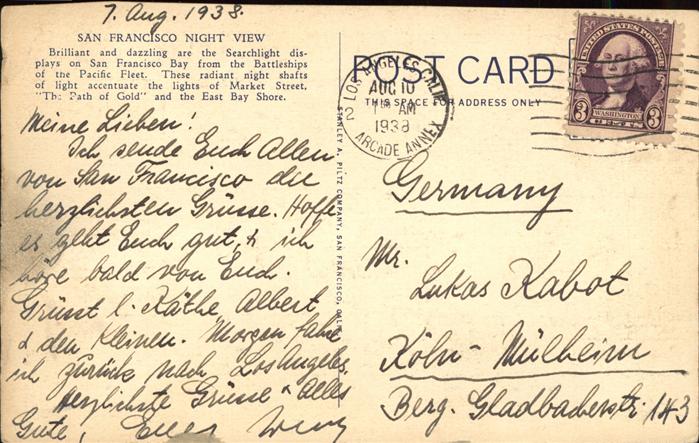 7. Aug. 1938.
SAN FRANCISCO NIGHT VIEW
Brilliant and dazzling are the Searchlight dis-
plays on San Francisco Bay from the Battleships
of the Pacific Fleet. These radiant night shafts
of light accentuate the lights of Market Street,
"The Path of Gold" and the East Bay Shore.
Meine Lieben!
Ich sende Euch Allen
von San Francisco die
herzlichsten Grüsse. Hoffe
es geht Euch gut, & ich
höre bald von Euch.
Grüsst l. Käthe, Albert
& den Kleinen. Morgen fahre
ich zurück nach Los Angeles.
Herzlichste Grüsse & alles
Gute, Euer
STANLEY A. PILTZ COMPANY, SAN FRANCISCO, CALIF.
POST CARD
THIS SPACE FOR ADDRESS ONLY
LOS ANGELES, CALIF.
AUG 10
AM
1938
ARCADE ANNEX
2
UNITED STATES POSTAGE
3 WASHINGTON 3
CENTS
Germany
Mr.
Lukas Kabot
Köln-Mülheim
Berg. Gladbacherstr. 143